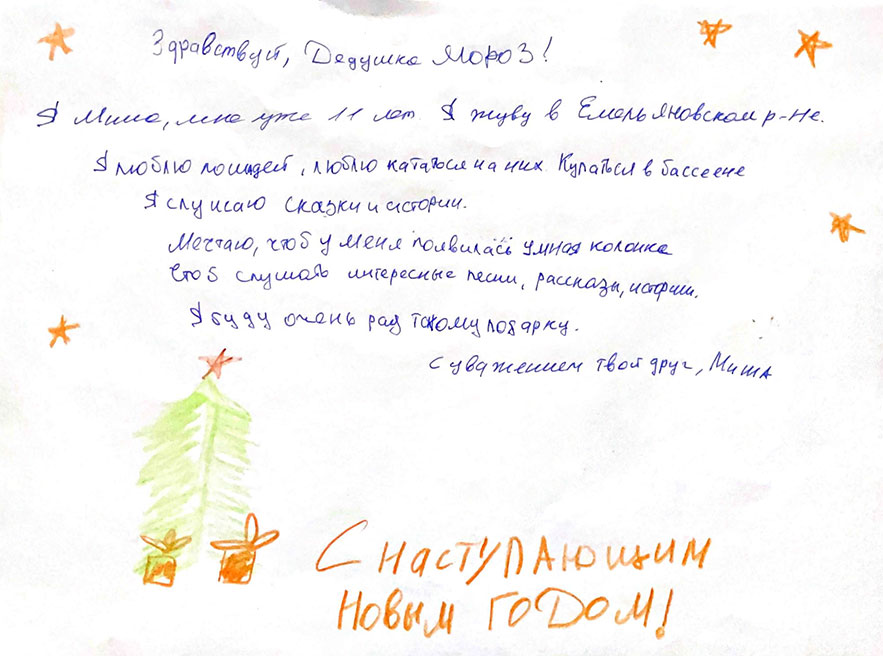 Здравствуй, Дедушка Мороз!
Я Миша, мне уже 11 лет. Я живу в Емельяновском р-не.
Я люблю лошадей, люблю кататься на них. Купаться в бассеене
Я слушаю сказки и истории.
Мечтаю, чтоб у меня появилась умная колонка
Чтоб слушать интересные песни, рассказы, истории.
Я буду очень рад такому подарку.
С уважением твой друг, Миша
С наступающим
Новым годом!